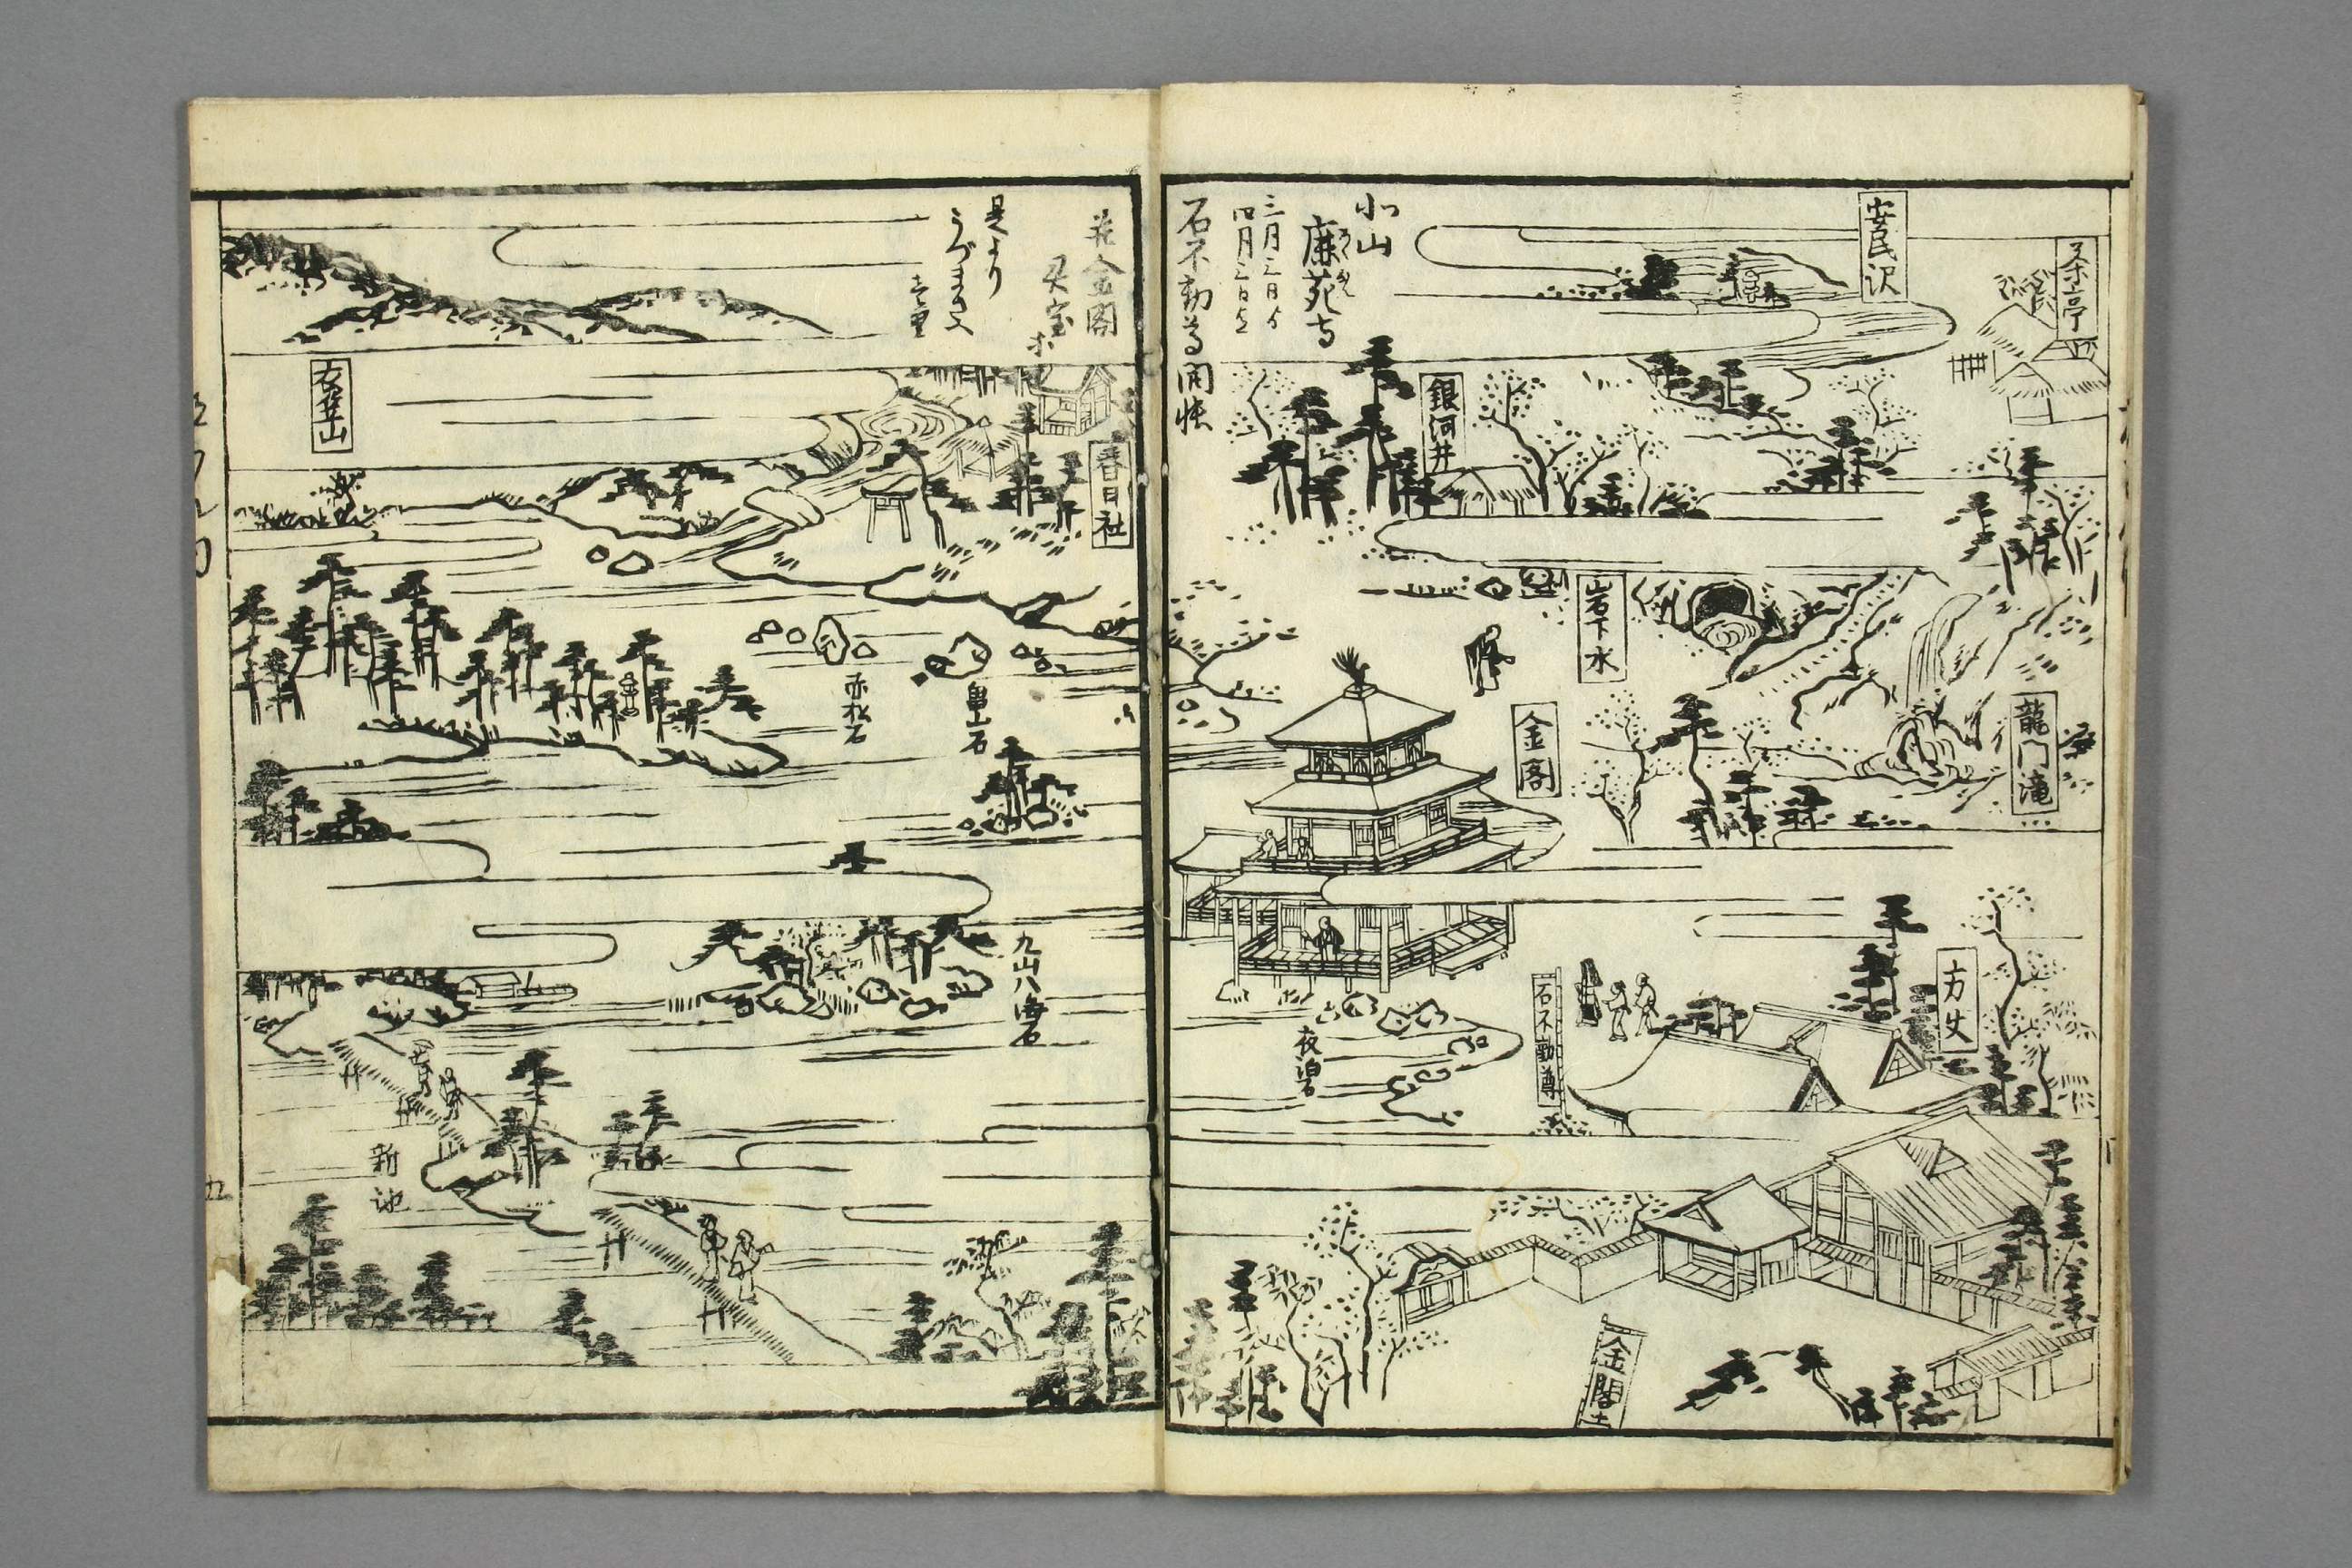 茶亭
安民沢
北山
鹿苑寺
ろくをん
三月二日ゟ
四月三日迄
石不動尊開帳
銀河井
岩下水
龍門滝
金閣
方丈
石不動尊
夜泊石
金閣寺
并金閣
是より
うづまさへ
壱里
春日社
衣笠山
亀山石
赤松石
九山八海石
新池